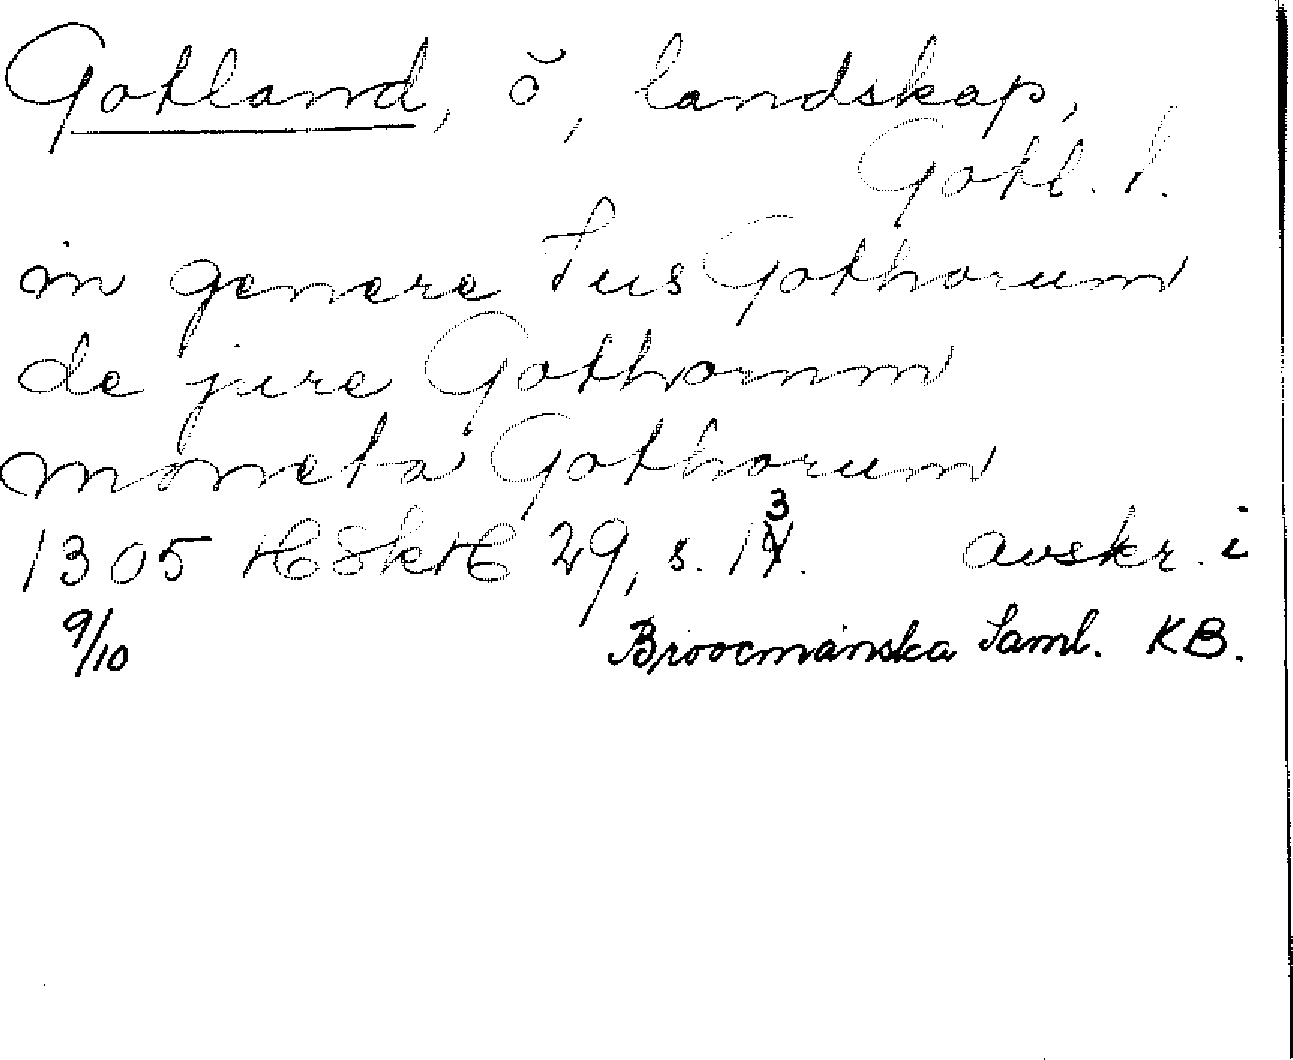 Gotland, ö, landskap,
Gotl. l.
in genere Jus Gothorum
de jure Gothorum
moneta Gothorum
1305 HSkH 29, s. 13. avskr. i
9/10 Broocmanska Saml. KB.